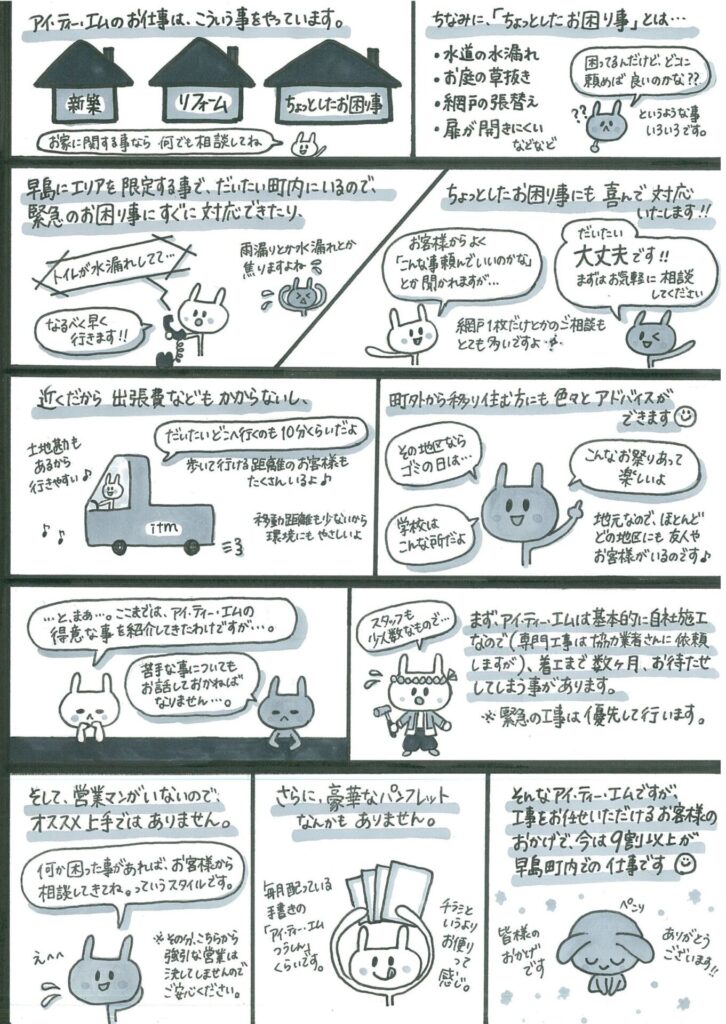 アイ・ティー・エムのお仕事は、こういう事をやっています。
新築
リフォーム
ちょっとしたお困り事
お家に関する事なら 何でも相談してね
ちなみに、「ちょっとしたお困り事」とは…
・水道の水漏れ
・お庭の草抜き
・網戸の張替え
・扉が開きにくい
などなど
困ってるんだけど、どこに
頼めば良いのかな??
??
というような事
いろいろです。
早島にエリアを限定する事で、だいたい町内にいるので、
緊急のお困り事にすぐに対応できたり、
トイレが水漏れしてて…
なるべく早く
行きます!!
雨漏りとか水漏れとか
焦りますよね
ちょっとしたお困り事にも喜んで対応
いたします!!
お客様からよく
「こんな事頼んでいいのかな」
とか聞かれますが…
だいたい
大丈夫です!!
まずはお気軽に相談
してください
網戸1枚だけとかのご相談も
とても多いですよ
近くだから出張費などもかからないし、
土地勘も
あるから
行きやすい♪
だいたいどこへ行くのも10分くらいだよ
歩いて行ける距離のお客様も
たくさんいるよ♪
itm
移動距離も少ないから
環境にもやさしいよ
町外から移り住む方にも色々とアドバイスが
できます
その地区なら
ゴミの日は…
こんなお祭りあって
楽しいよ
学校は
こんな所だよ
地元なので、ほとんど
どの地区にも友人や
お客様がいるのです♪
…と、まぁ…。ここまでは、アイ・ティー・エムの
得意な事を紹介してきたわけですが…。
苦手な事についても
お話しておかねば
なりません…。
スタッフも
少人数なもので…
まず、アイ・ティー・エムは基本的に自社施工
なので(専門工事は協力業者さんに依頼
しますが)、着工まで数ヶ月、お待たせ
してしまう事があります。
※緊急の工事は優先して行います。
そして、営業マンがいないので、
オススメ上手ではありません。
何か困った事があれば、お客様から
相談してきてね。っていうスタイルです。
えへへ
※その分、こちらから
強引な営業は
決してしませんので
ご安心ください。
さらに、豪華なパンフレット
なんかもありません。
毎月配っている
手書きの
「アイ・ティー・エム
つうしん」
くらいです。
チラシと
いうより
お便り
って
感じ。
そんなアイ・ティー・エムですが、
工事をお任せいただけるお客様の
おかげで、今は9割以上が
早島町内での仕事です
ペこり
皆様の
おかげ
です
ありがとう
ございます!!